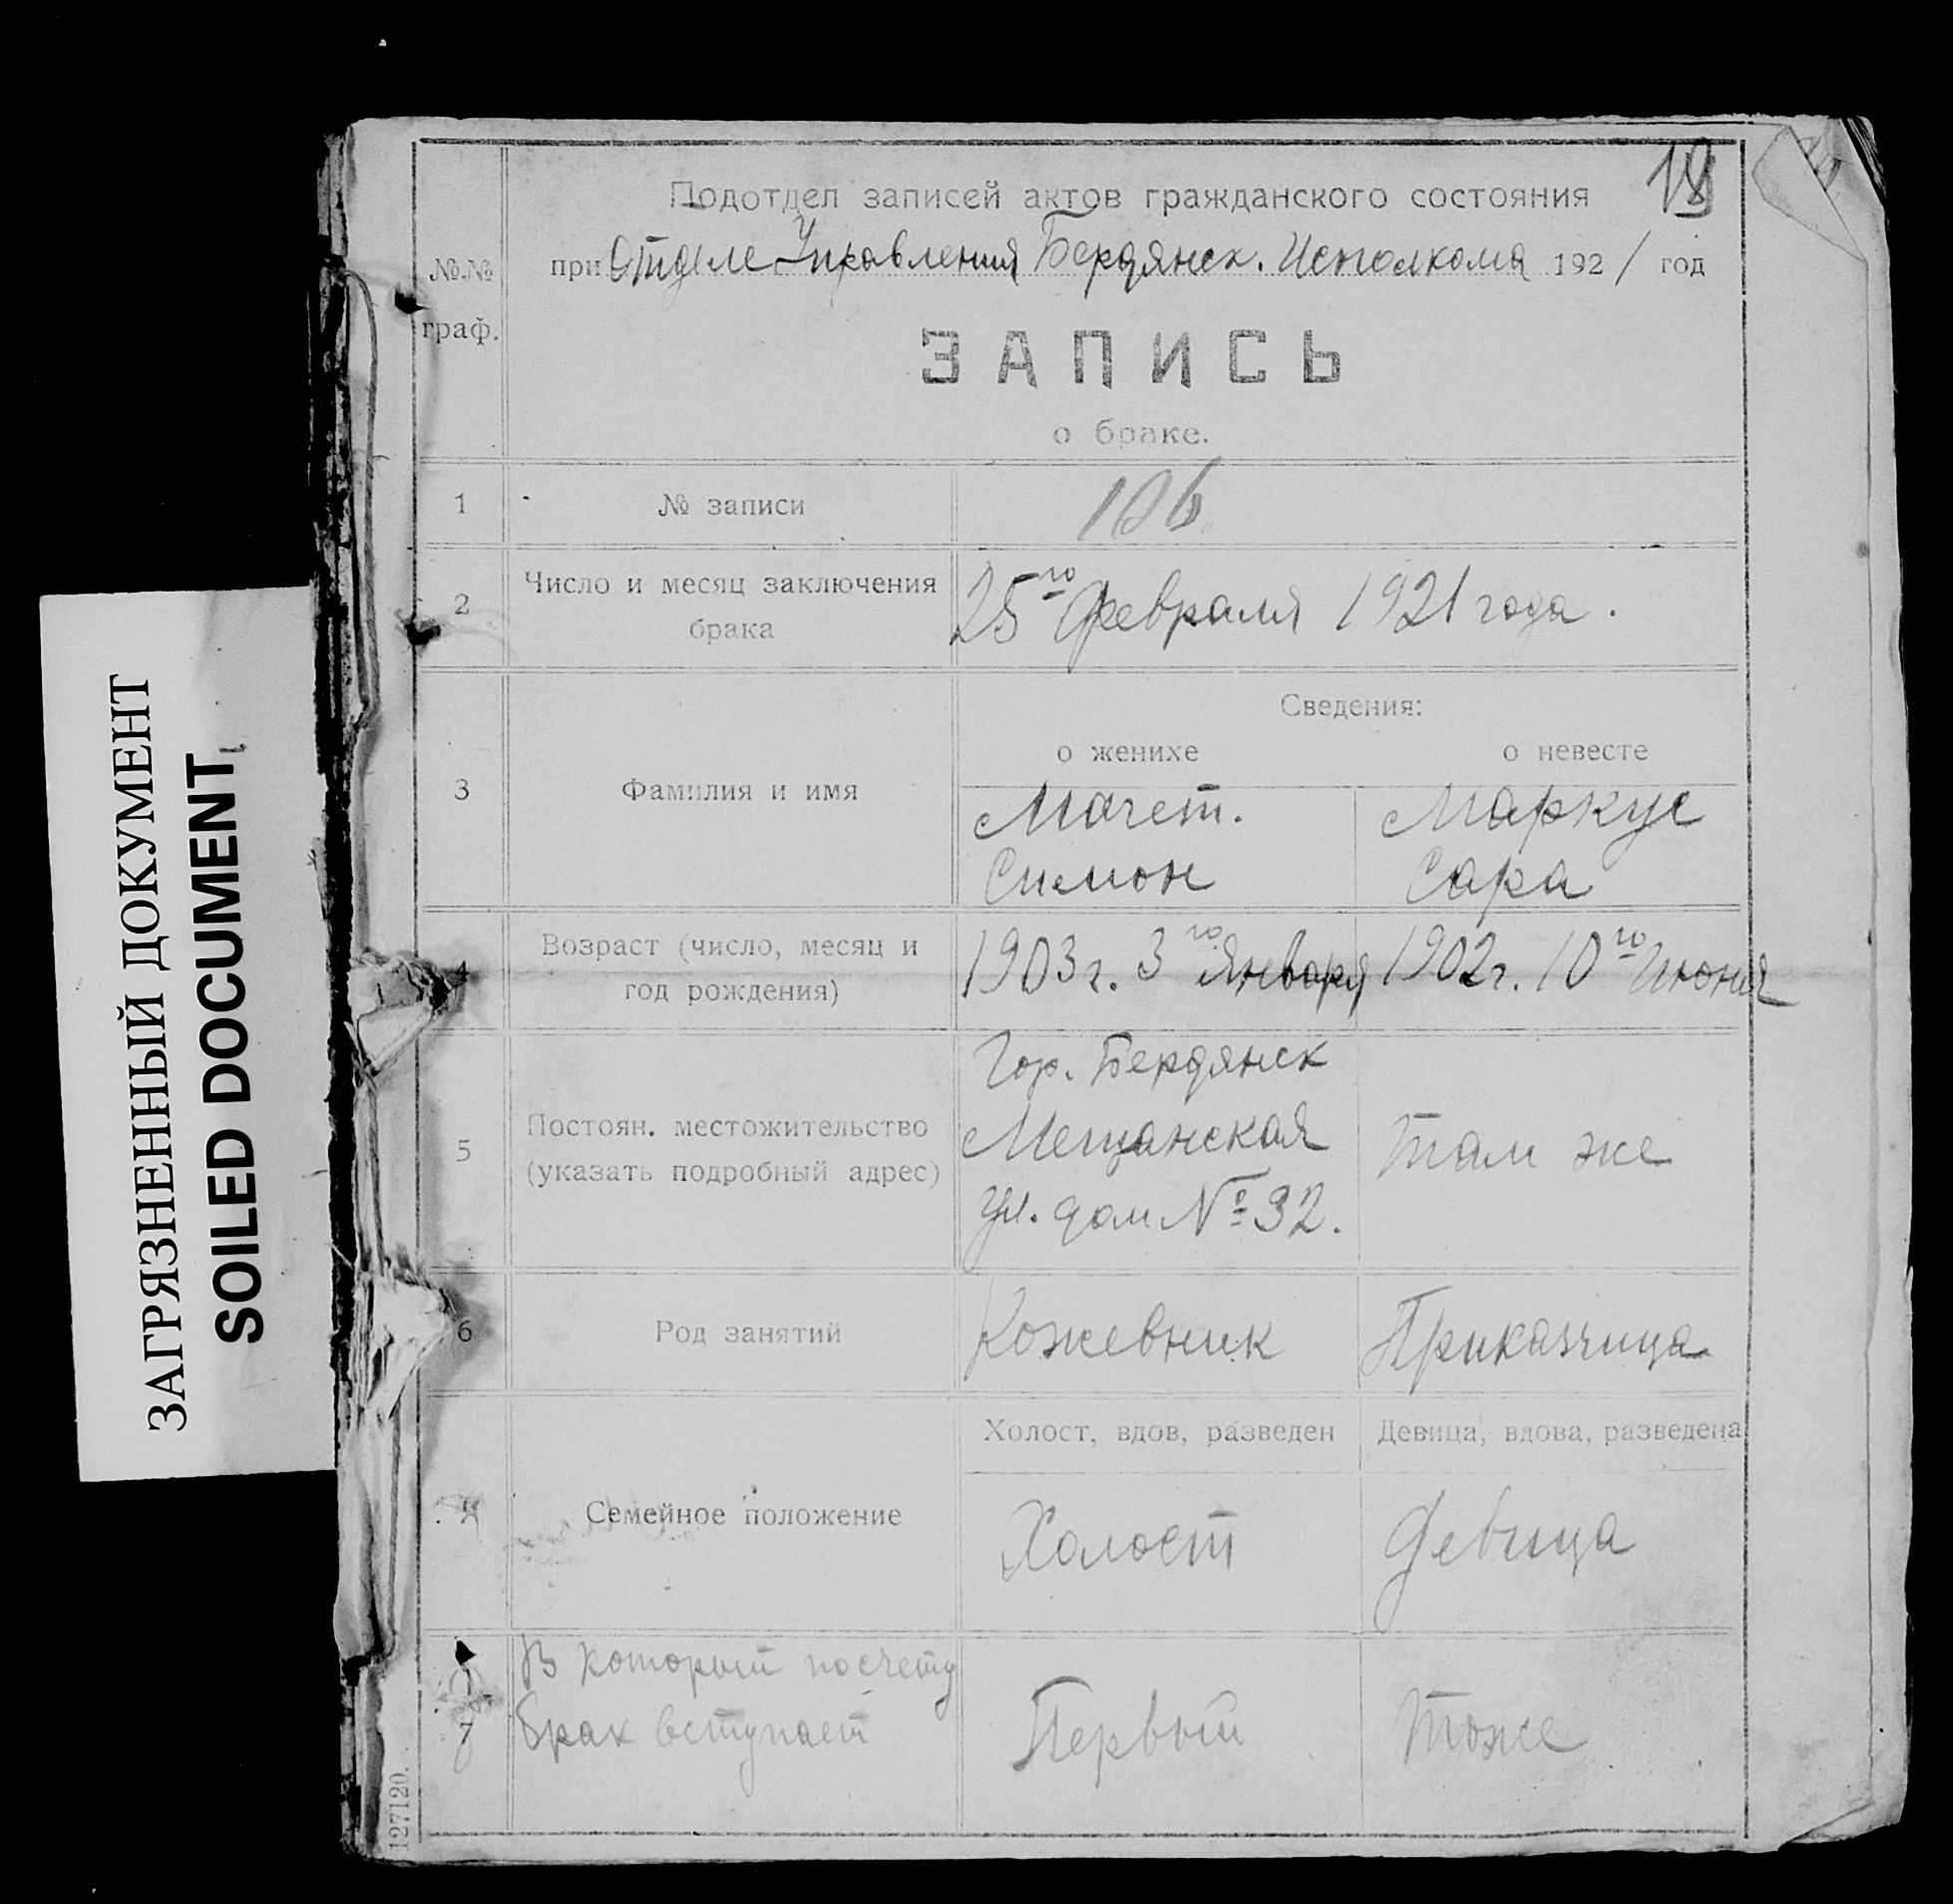 ЗАГРЯЗНЕННЫЙ ДОКУМЕНТ
SOILED DOCUMENT
Подотдел записей актов гражданского состояния
при Отделе Управления Бердянск. Исполкома 1921 год
№.№ граф.
ЗАПИСЬ
о браке.
1 № записи 106
2 Число и месяц заключения брака 25го Февраля 1921 года.
Сведения:
о женихе о невесте
3 Фамилия и имя
Мачет. Маркус
Симон Сара
4 Возраст (число, месяц и год рождения)
1903 г. 3го Января 1902 г. 10го Июня
5 Постоян. местожительство (указать подробный адрес)
Гор. Бердянск
Мещанская
ул. дом № 32.
Там же
6 Род занятий Кожевник Приказчица
Холост, вдов, разведен Девица, вдова, разведена
Семейное положение Холост Девица
7 В который по счету
брак вступает
Первый Тоже
127120.